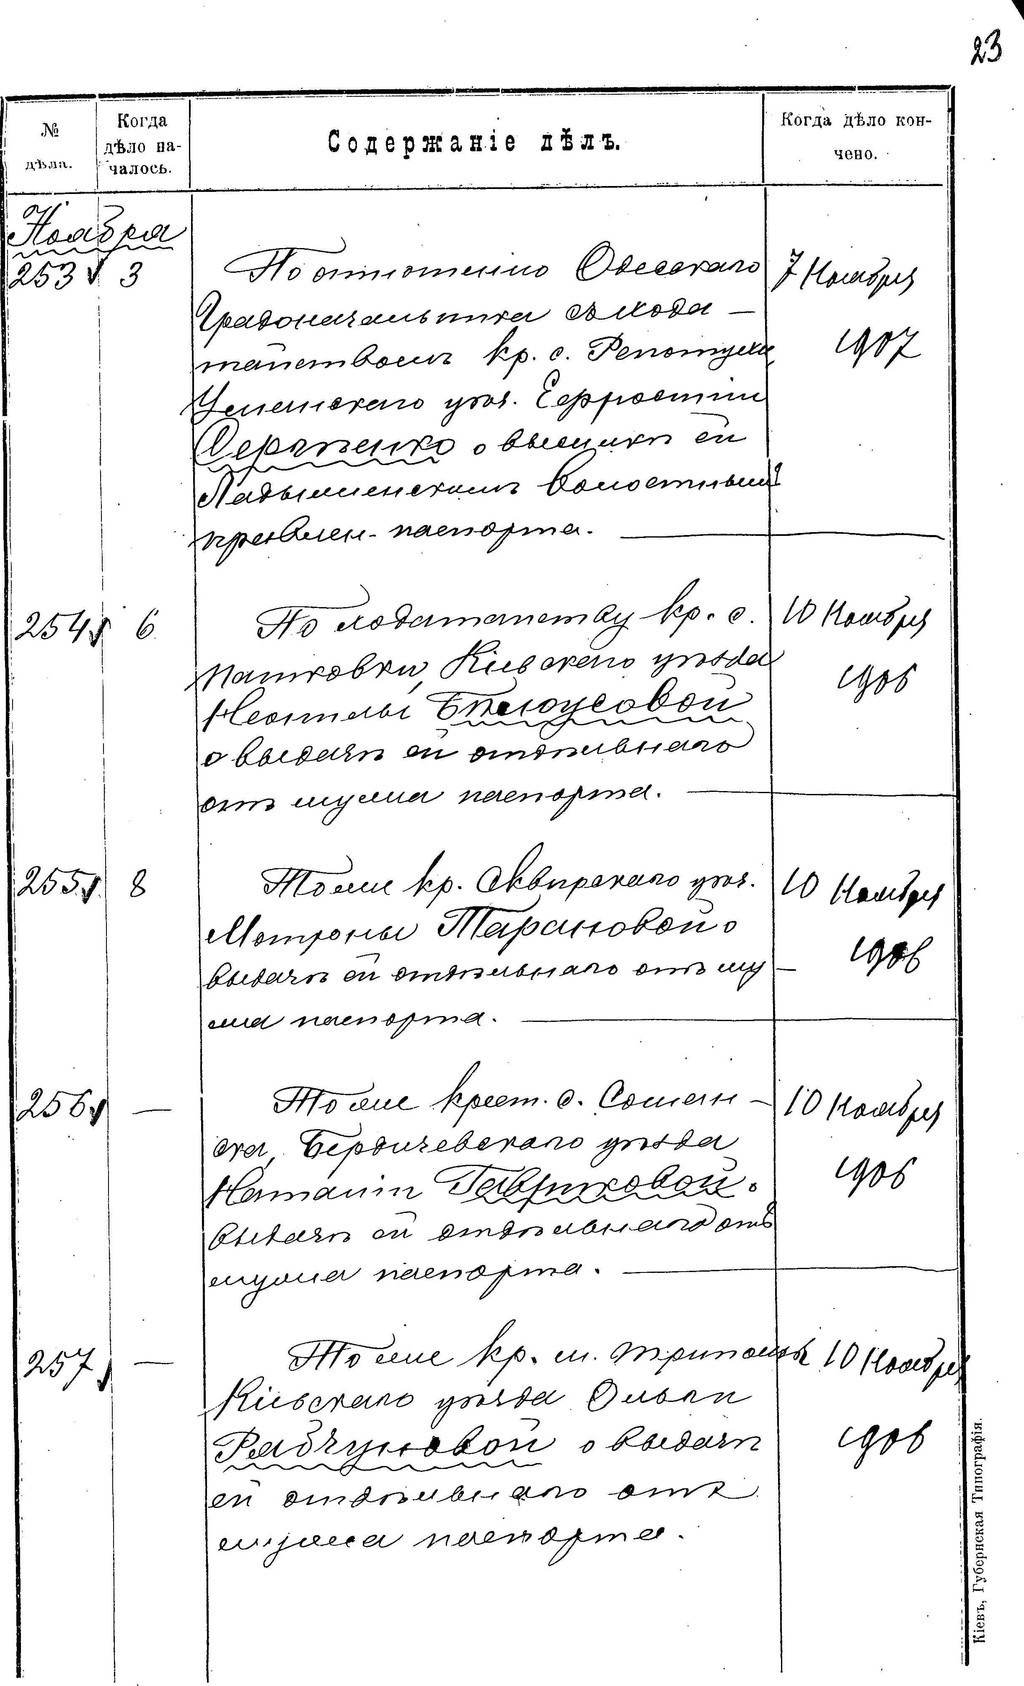 23
№ дѣла.
Когда дѣло началось.
Содержаніе дѣлъ.
Когда дѣло кончено.
Ноября
253 3 По отношенію Одесскаго 7 Ноября
Градоначальника съ хода-
тайствомъ кр. с. 1907
Уманскаго уѣз. Евфросиніи
Сергіенко о высылкѣ ей
Ладыженскимъ Волостнымъ
правлен. паспорта.
254 6 По ходатайству кр. с. 10 Ноября
Пашковки, Кіевскаго уѣзда 1906
Неонилы Бѣлоусовой
о выдачѣ ей отдѣльнаго
отъ мужа паспорта.
255 8 Тоже кр. Сквирскаго уѣз. 10 Ноября
Мотроны Тарановой о 1906
выдачѣ ей отдѣльнаго отъ му-
жа паспорта.
256 — Тоже крест. с. 10 Ноября
Бердичевскаго уѣзда
Наталіи Гавриковой о 1906
выдачѣ ей отдѣльнаго отъ
мужа паспорта.
257 — Тоже кр. м. Триполья 10 Ноября
Кіевскаго уѣзда Ольги
Рабчуновой о выдачѣ 1906
ей отдѣльнаго отъ
мужа паспорта.
Кіевъ, Губернская Типографія.